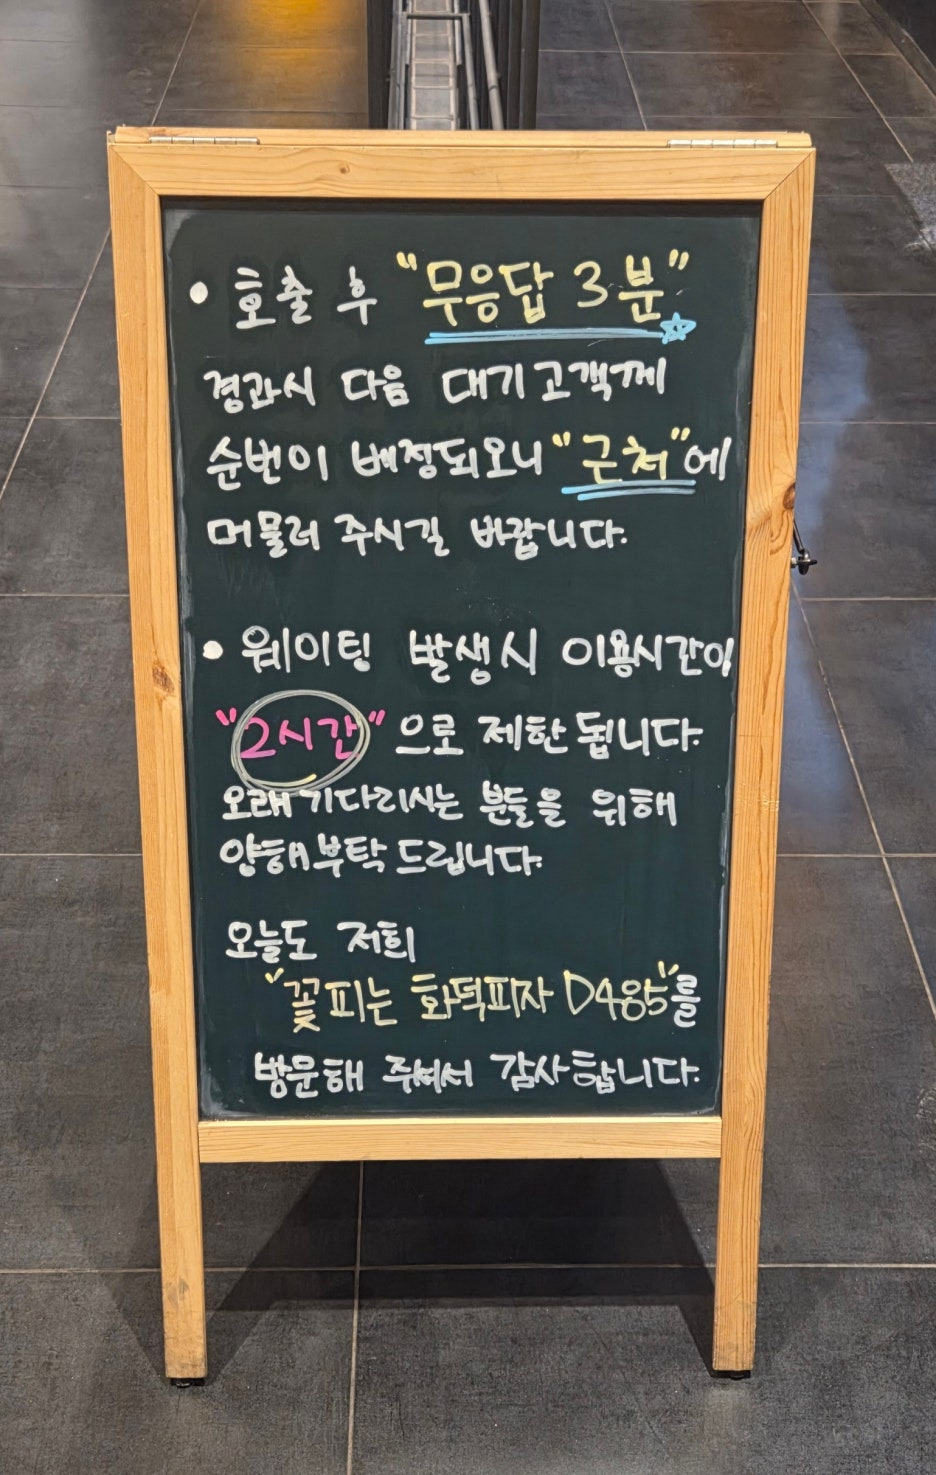 • 호출 후 "무응답 3분"
경과시 다음 대기고객께
순번이 배정되오니 "근처"에
머물러 주시길 바랍니다.
• 웨이팅 발생시 이용시간이
"2시간"으로 제한됩니다.
오래 기다리시는 분들을 위해
양해부탁드립니다.
오늘도 저희
"꽃피는 화덕피자 D485"를
방문해 주셔서 감사합니다.